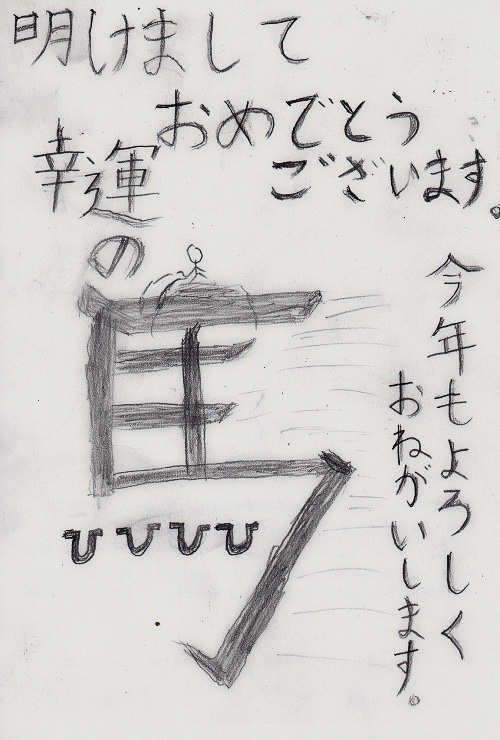 明けまして
おめでとう
ございます。
幸運
の
馬
今年もよろしく
おねがいします。